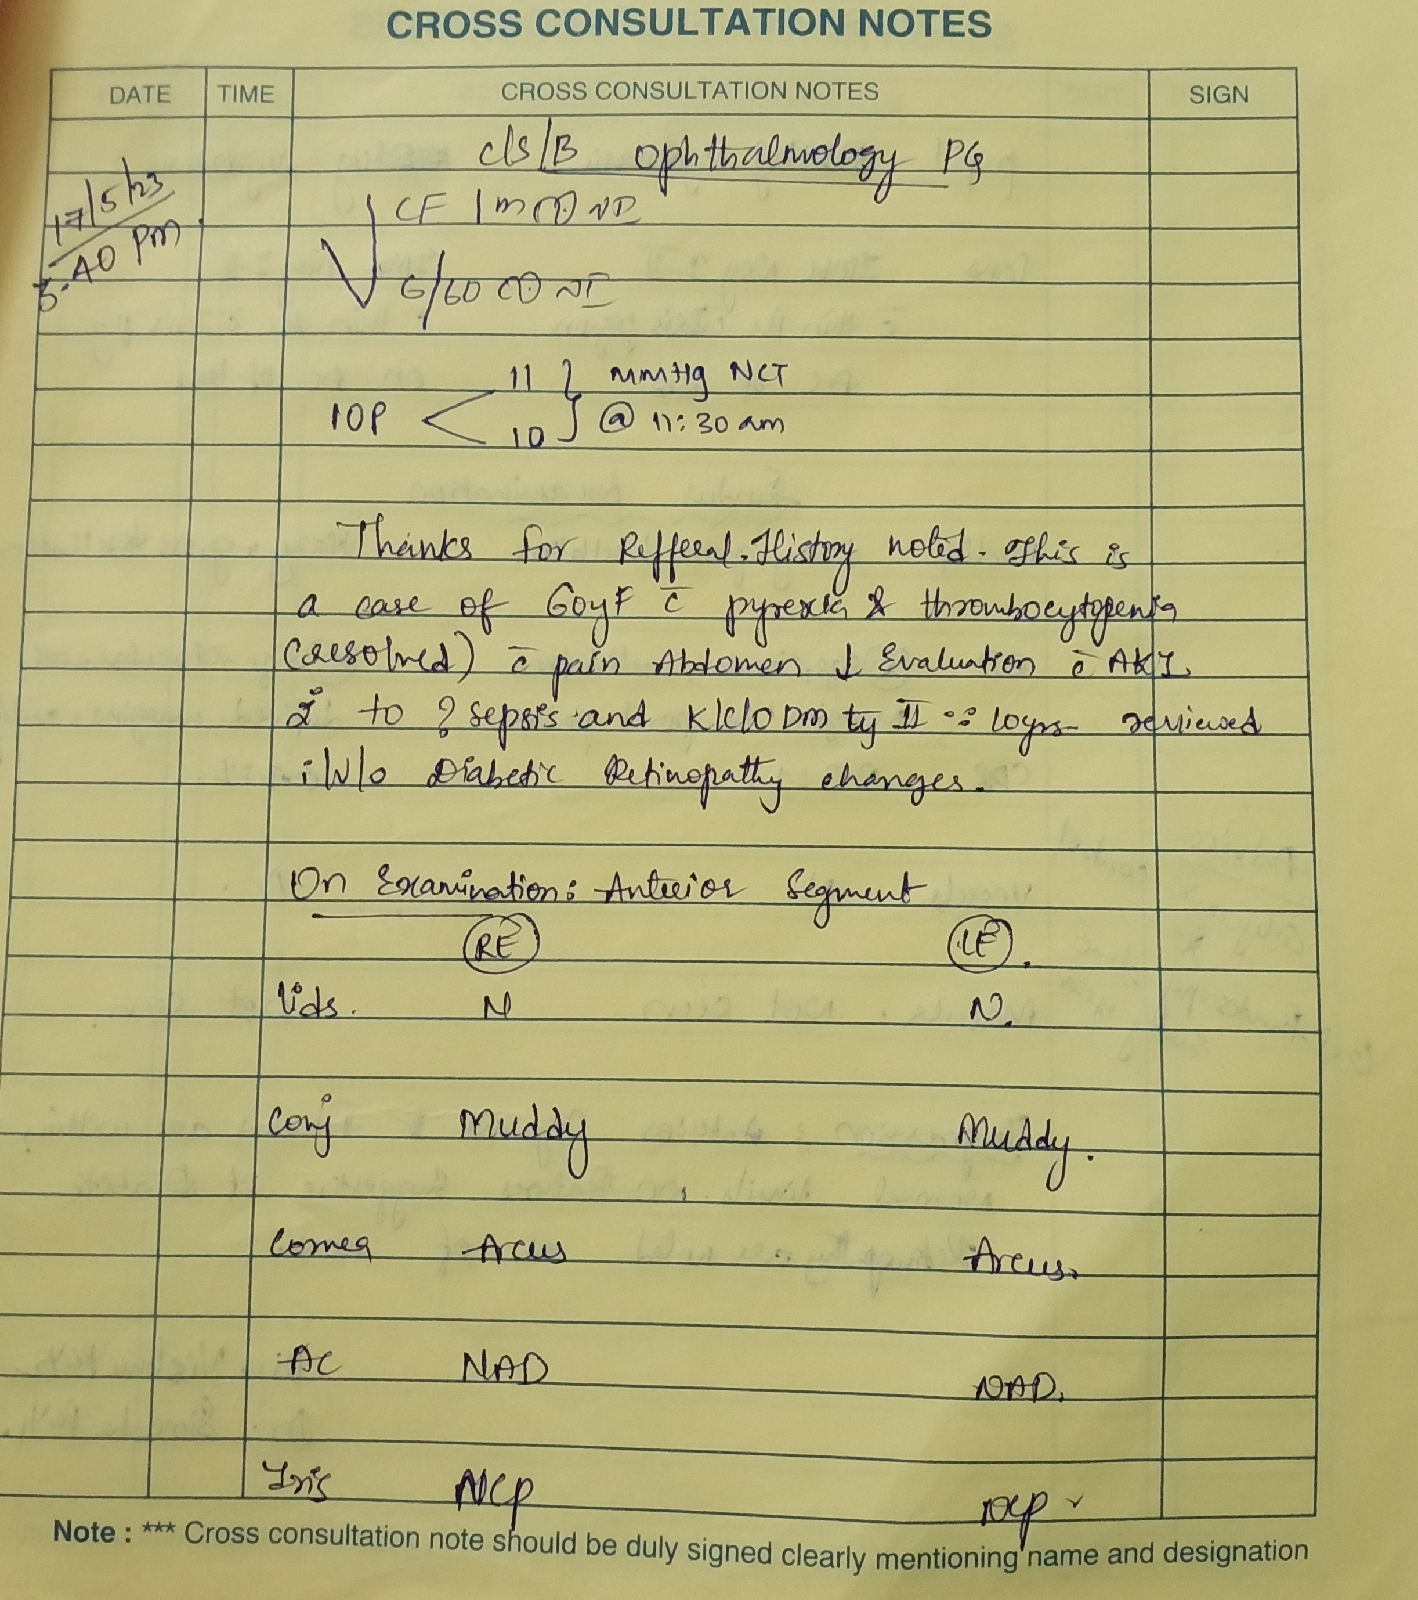 CROSS CONSULTATION NOTES
DATE TIME CROSS CONSULTATION NOTES SIGN
c/s/B Ophthalmology PG
17/5/23
5.40 Pm
CF 1m NI
V
6/60 NI
11 } mmHg NCT
IOP <
10 @ 11:30 am
Thanks for Reffeeal. History noted. This is
a case of 60yF c̄ pyrexia & thrombocytopenia
(resolved) c̄ pain Abdomen ↓ Evaluation c̄ AKI
2° to ? sepsis and K/c/o Dm ty II :: 10yrs reviewed
i/v/o Diabetic Retinopathy changes.
On Examination: Anterior Segment
RE LE
Lids. N N.
Conj Muddy Muddy.
Cornea Arcus Arcus.
AC NAD NAD.
Iris NCP NCP
Note : *** Cross consultation note should be duly signed clearly mentioning name and designation